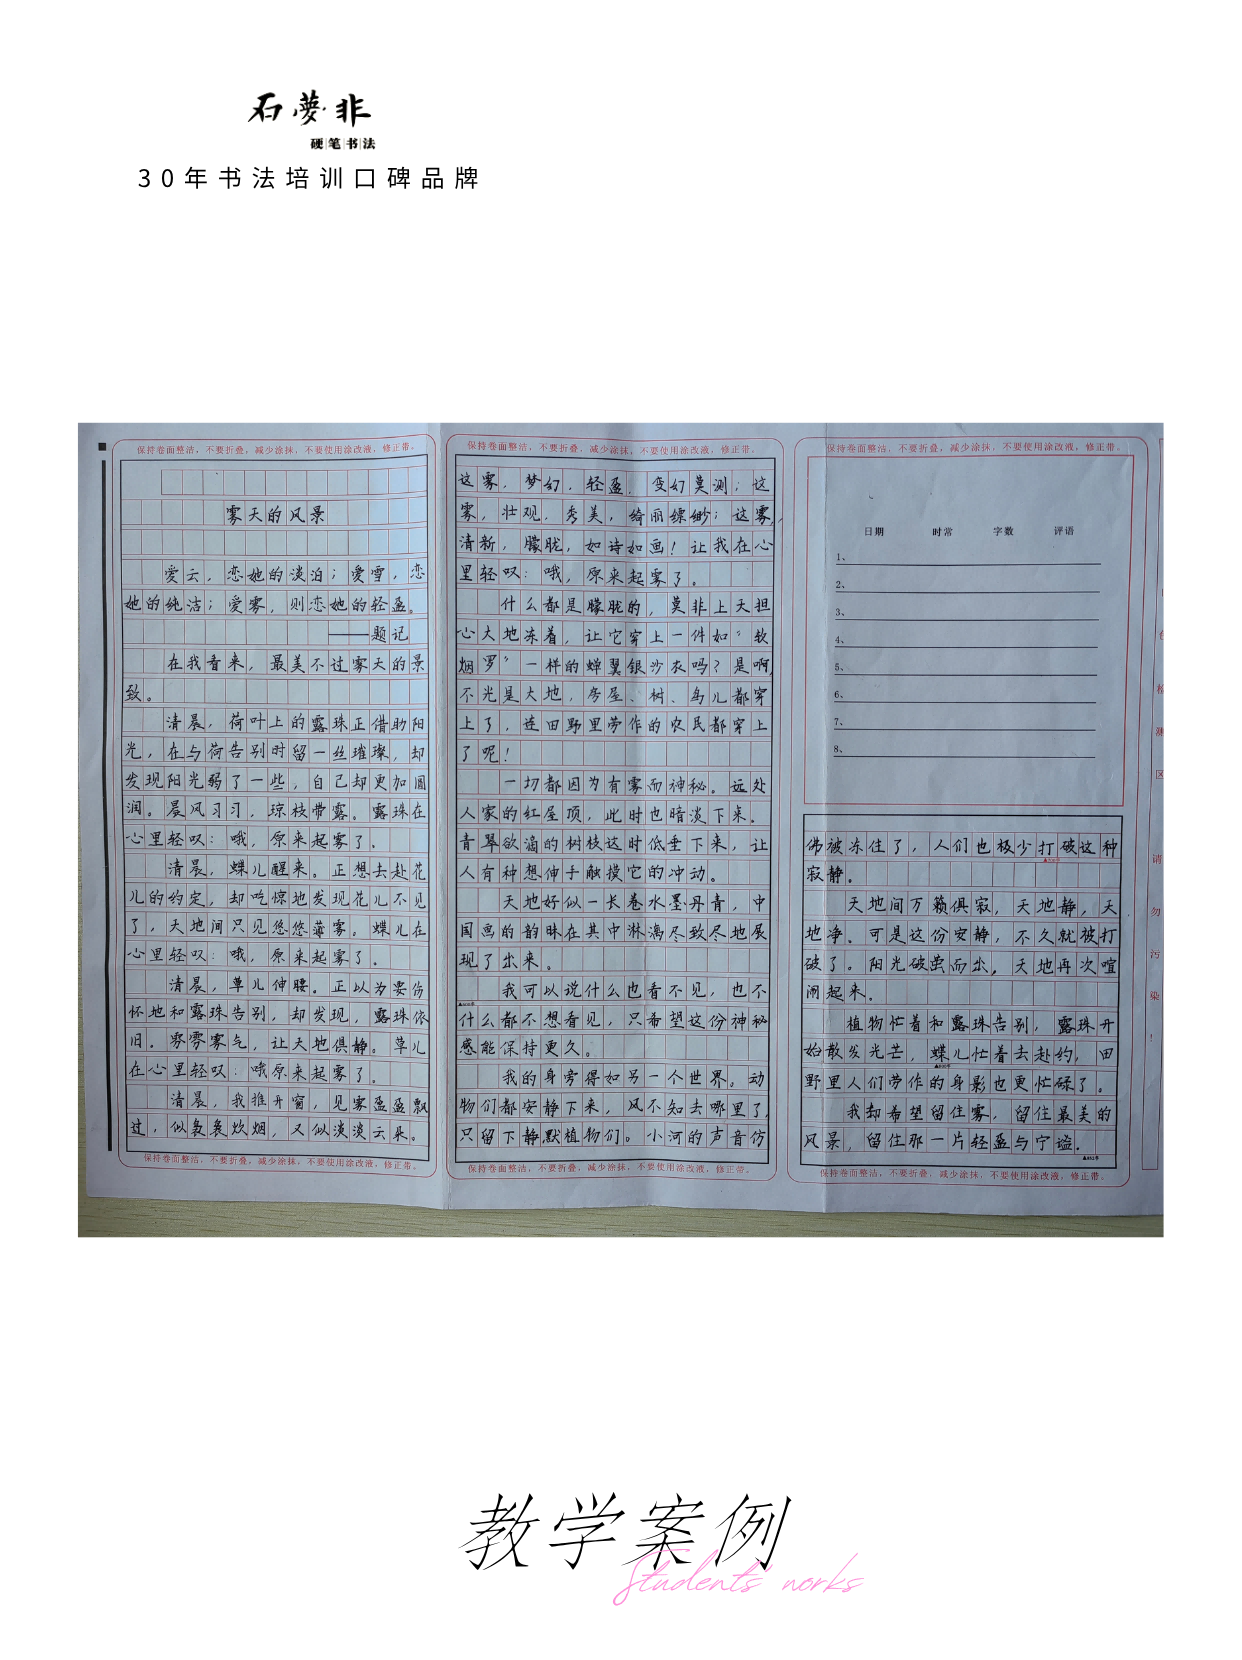 石夢非
硬笔书法
30年书法培训口碑品牌
保持卷面整洁，不要折叠，减少涂抹，不要使用涂改液，修正带。
雾天的风景
爱云，恋她的淡泊；爱雪，恋
她的纯洁；爱雾，则恋她的轻盈。
——题记
在我看来，最美不过雾天的景
致。
清晨，荷叶上的露珠正借助阳
光，在与荷告别时留一丝璀璨，却
发现阳光弱了一些，自己却更加圆
润。晨风习习，琼枝带露。露珠在
心里轻叹：哦，原来起雾了。
清晨，蝶儿醒来。正想去赴花
儿的约定，却吃惊地发现花儿不见
了，天地间只见悠悠薄雾。蝶儿在
心里轻叹：哦，原来起雾了。
清晨，草儿伸腰。正以为要伤
怀地和露珠告别，却发现，露珠依
旧。雾气，让天地俱静。草儿
在心里轻叹：哦原来起雾了。
清晨，我推开窗，见雾盈盈飘
过，似袅袅炊烟，又似淡淡云朵。
保持卷面整洁，不要折叠，减少涂抹，不要使用涂改液，修正带。
保持卷面整洁，不要折叠，减少涂抹，不要使用涂改液，修正带。
这雾，梦幻，轻盈，变幻莫测；这
雾，壮观，秀美，绮丽缥缈；这雾，
清新，朦胧，如诗如画！让我在心
里轻叹：哦，原来起雾了。
什么都是朦胧的，莫非上天担
心大地冻着，让它穿上一件如“软
烟罗”一样的蝉翼银沙衣吗？是啊，
不光是大地，房屋、树、鸟儿都穿
上了，连田野里劳作的农民都穿上
了呢！
一切都因为有雾而神秘。远处
人家的红屋顶，此时也暗淡下来。
青翠欲滴的树枝这时低垂下来，让
人有种想伸手触摸它的冲动。
天地好似一长卷水墨丹青，中
国画的韵味在其中淋漓尽致尽地展
现了出来。
我可以说什么也看不见，也不
什么都不想看见，只希望这份神秘
感能保持更久。
我的身旁得如另一个世界。动
物们都安静下来，风不知去哪里了，
只留下静默植物们。小河的声音仿
保持卷面整洁，不要折叠，减少涂抹，不要使用涂改液，修正带。
保持卷面整洁，不要折叠，减少涂抹，不要使用涂改液，修正带。
日期 时常 字数 评语
1、
2、
3、
4、
5、
6、
7、
8、
佛被冻住了，人们也极少打破这种
寂静。
天地间万籁俱寂，天地静，天
地净。可是这份安静，不久就被打
破了。阳光破茧而出，天地再次喧
闹起来。
植物忙着和露珠告别，露珠开
始散发光芒，蝶儿忙着去赴约，田
野里人们劳作的身影也更忙碌了。
我却希望留住雾，留住最美的
风景，留住那一片轻盈与宁谧。
保持卷面整洁，不要折叠，减少涂抹，不要使用涂改液，修正带。
请
勿
污
染
！
教学案例
Students' works